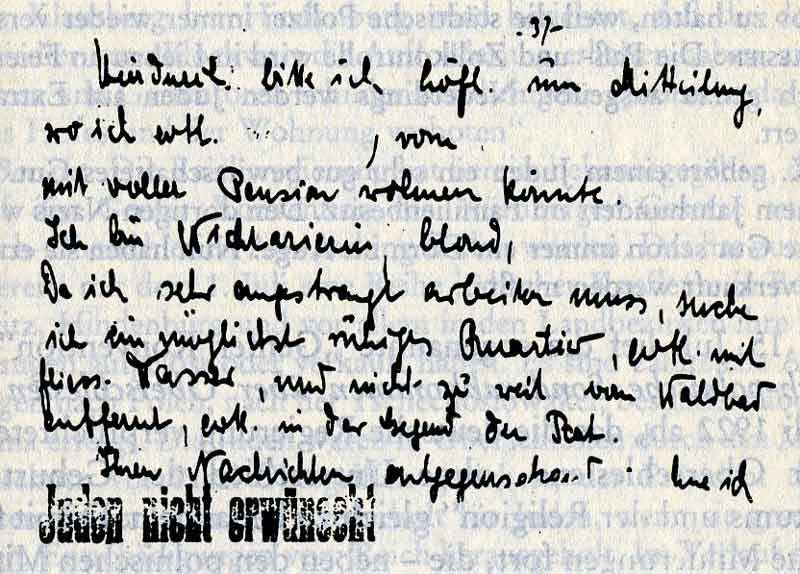 37-
bitte ich höfl. um Mitteilung,
wo ich evtl. , vom
mit voller Pension wohnen könnte.
Ich bin Nichtarierin, blond,
Da ich sehr angestrengt arbeiten muss, suche
ich ein möglichst ruhiges Quartier, evtl. mit
fliess. Wasser, und nicht zu weit vom Waldbad
entfernt, evtl. in der Gegend der Post.
Ihren Nachrichten entgegensehend bin ich
Juden nicht erwünscht